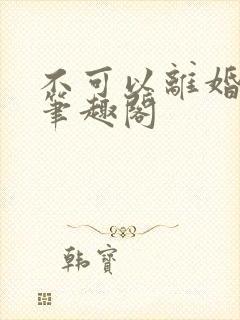 不可以離婚
筆趣閣
韩寶